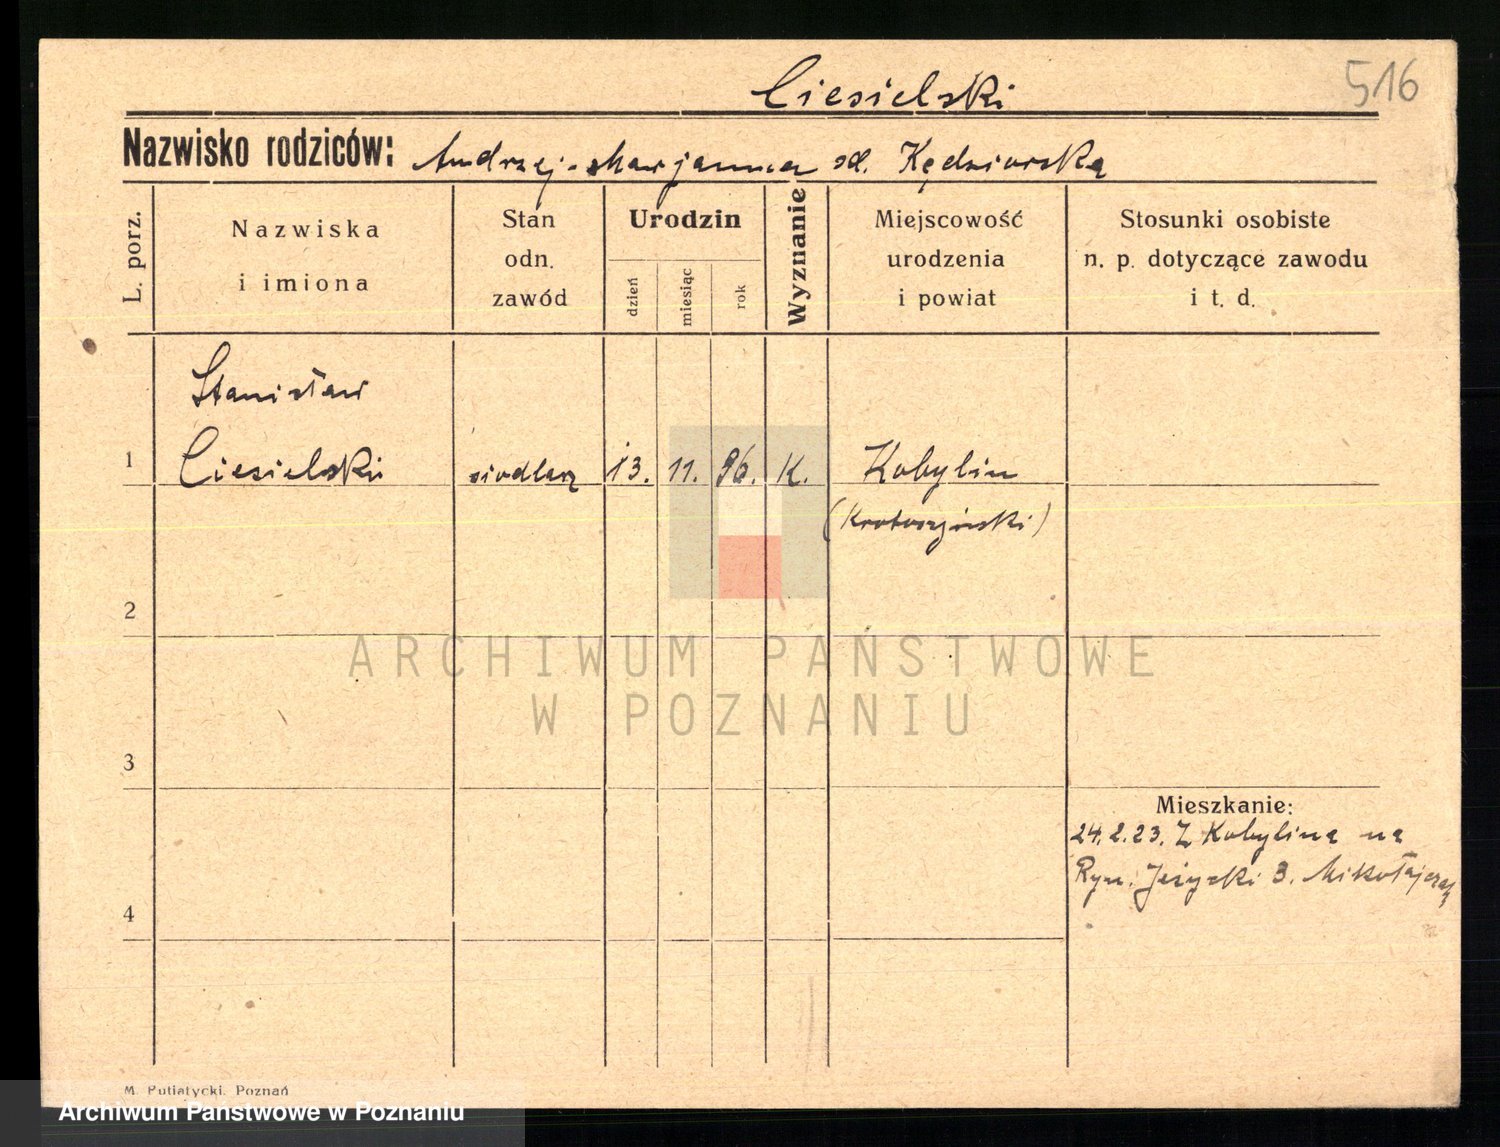 Ciesielski
516
Nazwisko rodziców: Andrzej - Marjanna od. Kędziorska
L. porz.
Nazwiska
i imiona
Stan
odn.
zawód
Urodzin
dzień
miesiąc
rok
Wyznanie
Miejscowość
urodzenia
i powiat
Stosunki osobiste
n. p. dotyczące zawodu
i t. d.
Stanisław
1 Ciesielski siodlarz 13. 11. 96. K. Kobylin
(Krotoszyński)
2
ARCHIWUM PAŃSTWOWE
W POZNANIU
3
Mieszkanie:
24.2.23. Z Kobylina na
Ryn. Jeżycki 3. Mikołajczaj
4
M. Putiatycki. Poznań
Archiwum Państwowe w Poznaniu